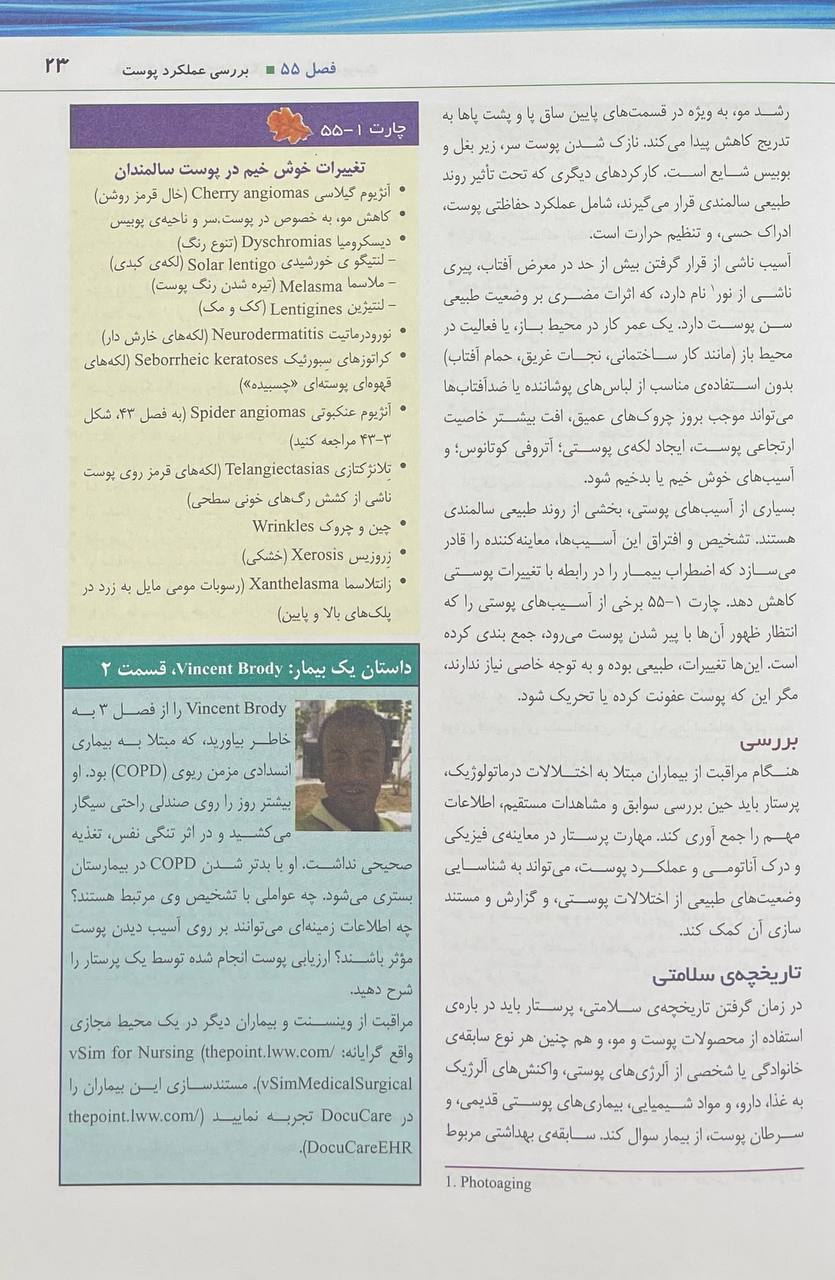 فصل ۵۵ ■ بررسی عملکرد پوست
۲۳
رشد مو، به ویژه در قسمت‌های پایین ساق پا و پشت پاها به
تدریج کاهش پیدا می‌کند. نازک شدن پوست سر، زیر بغل و
پوبیس شایع است. کارکردهای دیگری که تحت تأثیر روند
طبیعی سالمندی قرار می‌گیرند، شامل عملکرد حفاظتی پوست،
ادراک حسی، و تنظیم حرارت است.
آسیب ناشی از قرار گرفتن بیش از حد در معرض آفتاب، پیری
ناشی از نور۱ نام دارد، که اثرات مضری بر وضعیت طبیعی
سن پوست دارد. یک عمر کار در محیط باز، یا فعالیت در
محیط باز (مانند کار ساختمانی، نجات غریق، حمام آفتاب)
بدون استفاده‌ی مناسب از لباس‌های پوشاننده یا ضدآفتاب‌ها
می‌تواند موجب بروز چروک‌های عمیق، افت بیشتر خاصیت
ارتجاعی پوست، ایجاد لکه‌ی پوستی؛ آتروفی کوتانوس؛ و
آسیب‌های خوش خیم یا بدخیم شود.
بسیاری از آسیب‌های پوستی، بخشی از روند طبیعی سالمندی
هستند. تشخیص و افتراق این آسیب‌ها، معاینه‌کننده را قادر
می‌سازد که اضطراب بیمار را در رابطه با تغییرات پوستی
کاهش دهد. چارت ۱-۵۵ برخی از آسیب‌های پوستی را که
انتظار ظهور آن‌ها با پیر شدن پوست می‌رود، جمع بندی کرده
است. این‌ها تغییرات، طبیعی بوده و به توجه خاصی نیاز ندارند،
مگر این که پوست عفونت کرده یا تحریک شود.
بررسی
هنگام مراقبت از بیماران مبتلا به اختلالات درماتولوژیک،
پرستار باید حین بررسی سوابق و مشاهدات مستقیم، اطلاعات
مهم را جمع آوری کند. مهارت پرستار در معاینه‌ی فیزیکی
و درک آناتومی و عملکرد پوست، می‌تواند به شناسایی
وضعیت‌های طبیعی از اختلالات پوستی، و گزارش و مستند
سازی آن کمک کند.
تاریخچه‌ی سلامتی
در زمان گرفتن تاریخچه‌ی سلامتی، پرستار باید در باره‌ی
استفاده از محصولات پوست و مو، و هم چنین هر نوع سابقه‌ی
خانوادگی یا شخصی از آلرژی‌های پوستی، واکنش‌های آلرژیک
به غذا، دارو، و مواد شیمیایی، بیماری‌های پوستی قدیمی، و
سرطان پوست، از بیمار سوال کند. سابقه‌ی بهداشتی مربوط
1. Photoaging
چارت ۱-۵۵
تغییرات خوش خیم در پوست سالمندان
• آنژیوم گیلاسی Cherry angiomas (خال قرمز روشن)
• کاهش مو، به خصوص در پوست سر و ناحیه‌ی پوبیس
• دیسکرومیا Dyschromias (تنوع رنگ)
– لنتیگو ی خورشیدی Solar lentigo (لکه‌ی کبدی)
– ملاسما Melasma (تیره شدن رنگ پوست)
– لنتیژین Lentigines (کک و مک)
• نورودرماتیت Neurodermatitis (لکه‌های خارش دار)
• کراتوزهای سبورئیک Seborrheic keratoses (لکه‌های
قهوه‌ای پوسته‌ای «چسبیده»)
• آنژیوم عنکبوتی Spider angiomas (به فصل ۴۳، شکل
۳-۴۳ مراجعه کنید)
• تِلانژکتازی Telangiectasias (لکه‌های قرمز روی پوست
ناشی از کشش رگ‌های خونی سطحی)
• چین و چروک Wrinkles
• زِروزیس Xerosis (خشکی)
• زانتلاسما Xanthelasma (رسوبات مومی مایل به زرد در
پلک‌های بالا و پایین)
داستان یک بیمار: Vincent Brody، قسمت ۲
Vincent Brody را از فصل ۳ به
خاطر بیاورید، که مبتلا به بیماری
انسدادی مزمن ریوی (COPD) بود. او
بیشتر روز را روی صندلی راحتی سیگار
می‌کشید و در اثر تنگی نفس، تغذیه
صحیحی نداشت. او با بدتر شدن COPD در بیمارستان
بستری می‌شود. چه عواملی با تشخیص وی مرتبط هستند؟
چه اطلاعات زمینه‌ای می‌توانند بر روی آسیب دیدن پوست
مؤثر باشند؟ ارزیابی پوست انجام شده توسط یک پرستار را
شرح دهید.
مراقبت از وینسنت و بیماران دیگر در یک محیط مجازی
واقع گرایانه: vSim for Nursing (thepoint.lww.com/
vSimMedicalSurgical). مستندسازی این بیماران را
در DocuCare تجربه نمایید (thepoint.lww.com/
DocuCareEHR).